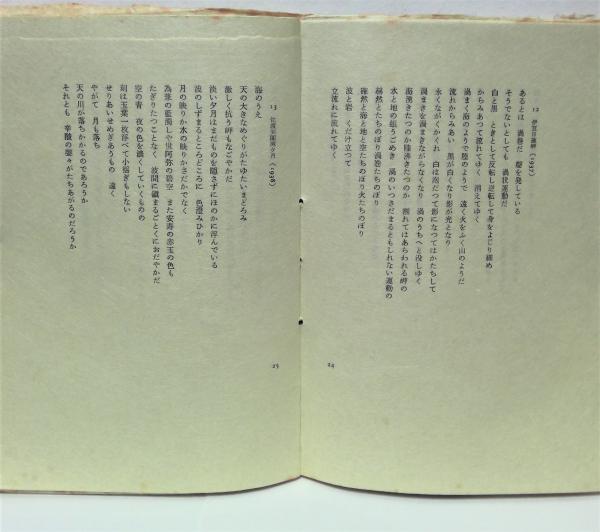 12 伊豆日蓮岬 (1937)
あるとは 渦巻だ 磨を発している
そうでないとしても 渦状運動だ
白と黒 ときとして反転し逆転して身をよじり締め
からみあって流れてゆく 消えてゆく
渦まく海のようで陸のようで 遠く火をふく山のようだ
流れからみあい 黒が白くなり影が光となり
永くながくかくれ 白は泡だつて影になつてはかたちして
渦まきを渦まきながらなくなり 渦のうちへと没しゆく
海湧きたつのか陸沸きたつのか 割れてはあらわれる岬の
水と地の組うごめき 渦のいつきだまるともしれない運動の
蒻然とたちのぼり渦巻たちのぼり
確然と海と地と空たちのぼり火たちのぼり
波と岩 くだけ立つて
立流れに流れてゆく
24
13 佐渡宝閣瀬夕月 (1938)
海のうえ
天の大きなめぐりがたゆたいまどろみ
激しく抗う岬もなごやかだ
淡い夕月はまだものを隠さずにほのかに浮んでいる
波のしずまるところどころに 色澄みひかり
月の映りか水の映りかさだかでなく
為兼の藍濁しや世阿弥の碧空 また安寿の赤玉の色も
たぎりたつことなく 波間に鎮まるごとくにおだやかだ
空の青 夜の色を濃くしていくものの
刻は玉葉一枚浮べて小揺ぎもしない
せりあいせめぎあうもの 遠く
やがて 月も落ち
天の川が落ちかかるのであろうか
それとも 辛酸の聖々がたちあがるのだろうか
25